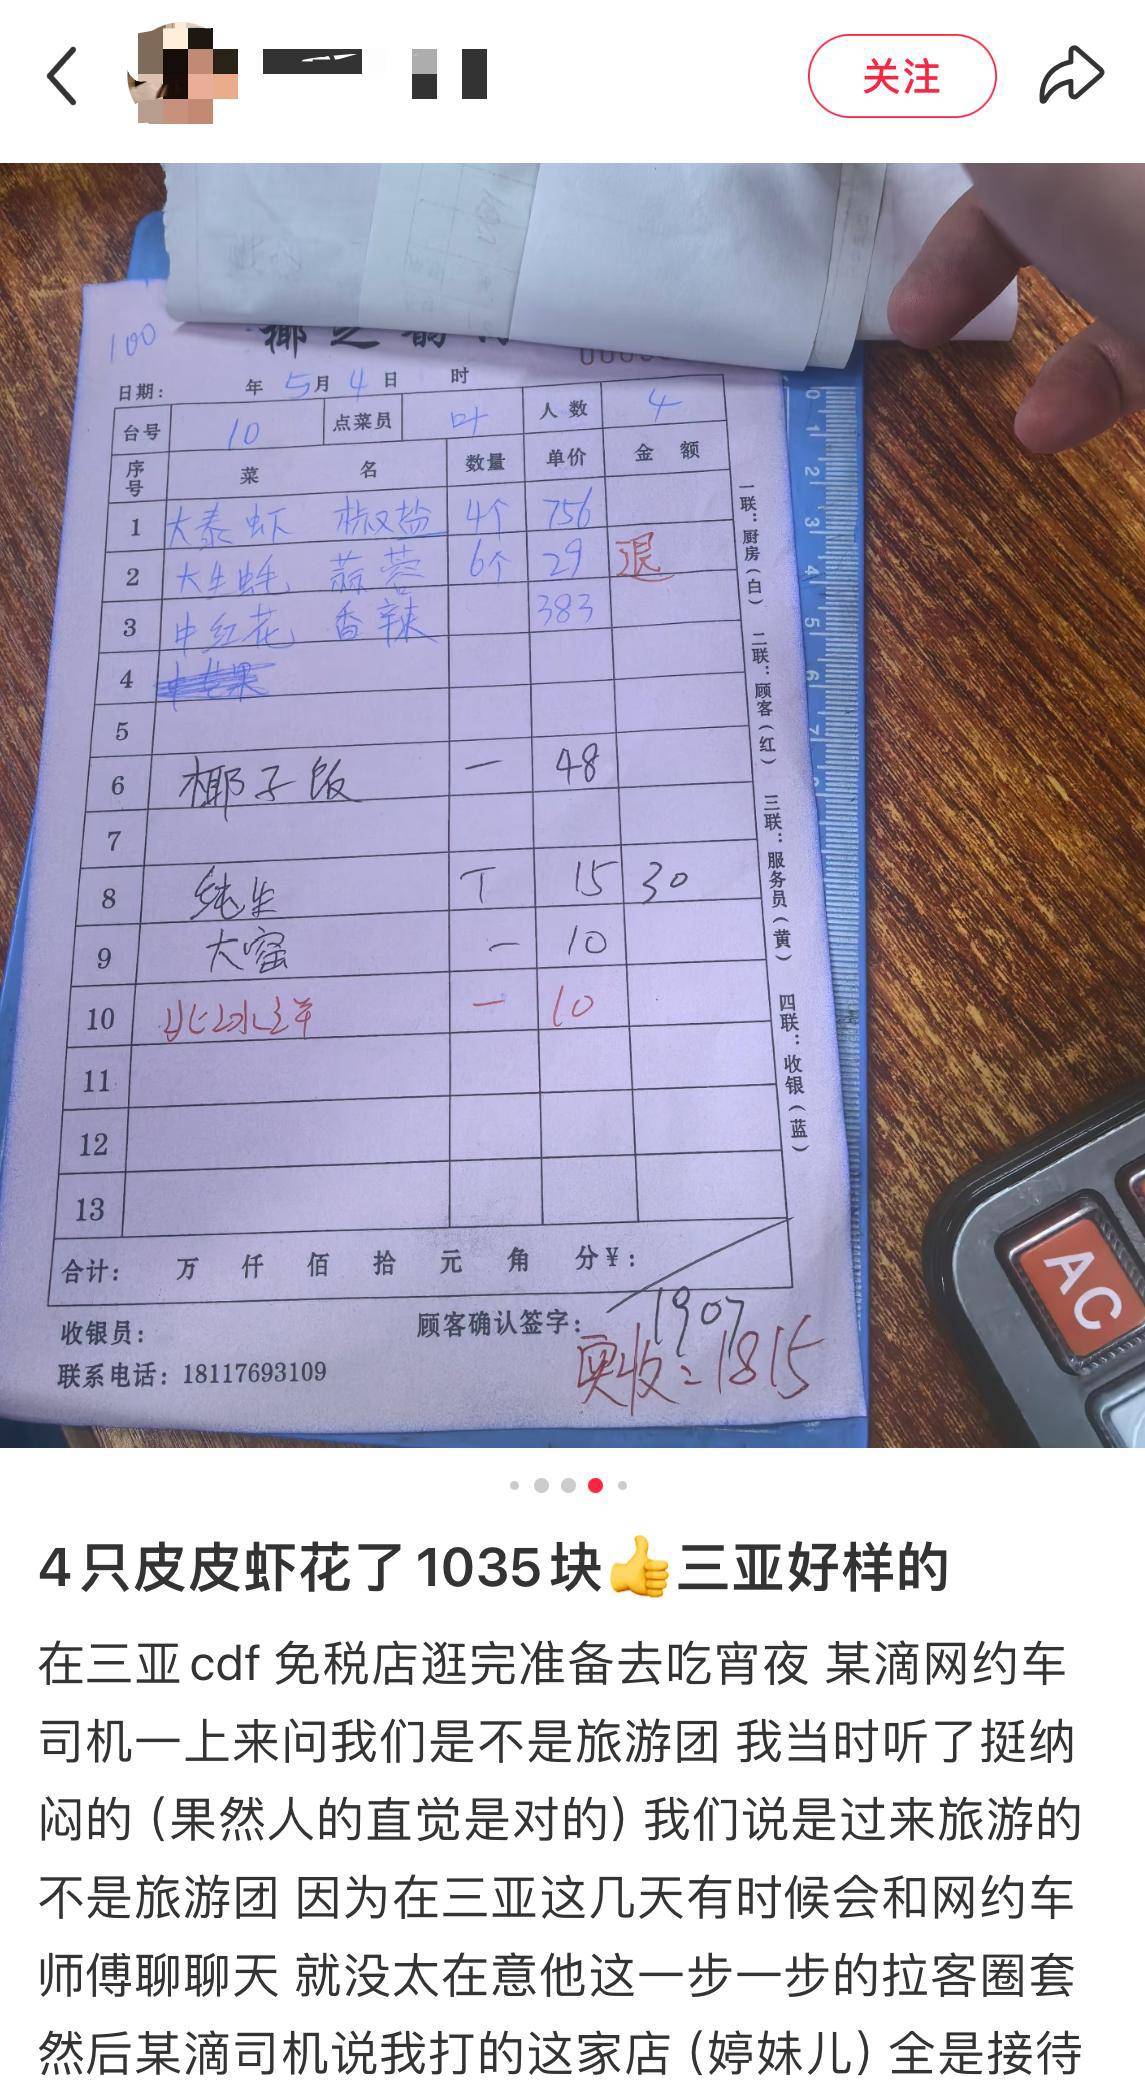 关注
100
日期： 年 5月 4日 时
台号 10 点菜员 叶 人数 4
序号 菜 名 数量 单价 金 额
1 大泰虾 椒盐 4个 756
2 大生蚝 蒜蓉 6个 29 退
3 中红花 香辣 383
4
5
6 椰子饭 一 48
7
8 纯生 T 15 30
9 大窑 一 10
10 北冰洋 一 10
11
12
13
一联：厨房（白） 二联：顾客（红） 三联：服务员（黄） 四联：收银（蓝）
合计： 万 仟 佰 拾 元 角 分￥：
1907
收银员： 顾客确认签字：
实收：1815
联系电话：18117693109
0 1 2 3 4 5 6 7
AC
4只皮皮虾花了1035块👍三亚好样的
在三亚cdf 免税店逛完准备去吃宵夜 某滴网约车
司机一上来问我们是不是旅游团 我当时听了挺纳
闷的（果然人的直觉是对的）我们说是过来旅游的
不是旅游团 因为在三亚这几天有时候会和网约车
师傅聊聊天 就没太在意他这一步一步的拉客圈套
然后某滴司机说我打的这家店（婷妹儿）全是接待